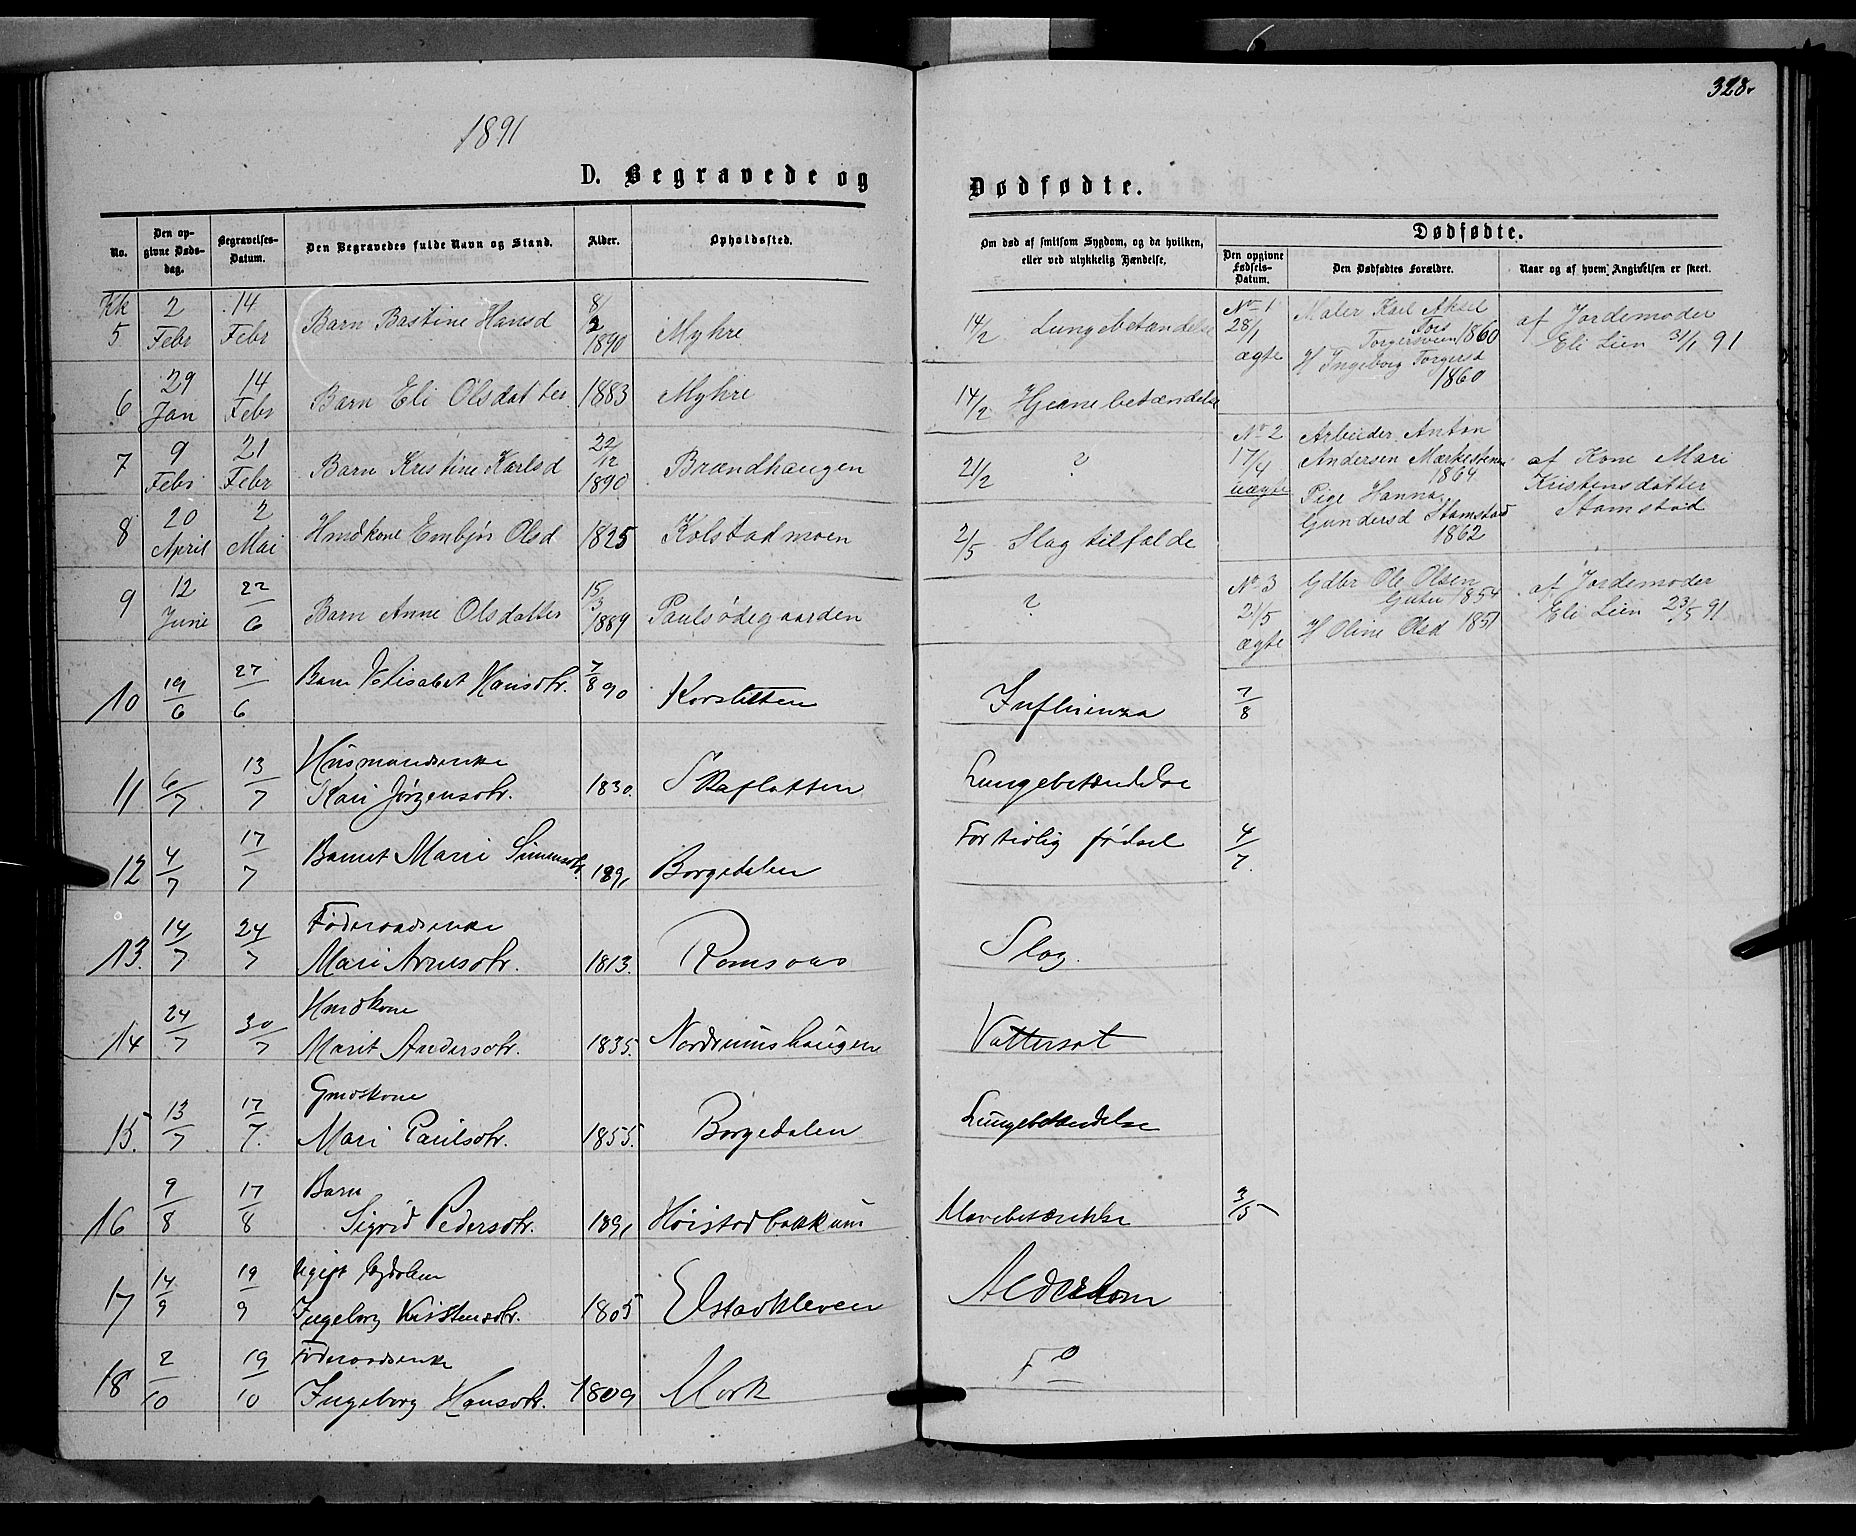 328.
1891
D. Begravede og Dødfødte.
No. | Den opgivne Dødsdag. | Begravelses-Datum. | Den Begravedes fulde Navn og Stand. | Alder. | Opholdssted. | Om død af smitsom Sygdom, og da hvilken, eller ved ulykkelig Hændelse.
Dødfødte.
Den opgivne Fødsels-Datum. | Den Dødfødtes Forældre. | Naar og af hvem Angivelsen er skeet.
Kk 5 | 2 Febr | 14 Febr | Barn Bastine Hansd | 8/2 1890 | Myhre | 14/2 Lungebetændelse
6 | 29 Jan | 14 Febr | Barn Eli Olsdatter | 1883 | Myhre | 14/2 Hjernebetændelse
7 | 9 Febr | 21 Febr | Barn Kristine Karlsd | 22/12 1890 | Brændhaugen | 21/2 ?
8 | 20 April | 2 Mai | Hmdkone Embjør Olsd | 1825 | Kolstadmoen | 2/5 Slagtilfælde
9 | 12 June | 22/6 | Barn Anne Olsdatter | 15/3 1889 | Paulsødegaarden | ?
10 | 19/6 | 27/6 | Barn Elisabet Hansdtr. | 7/8 90 | Korslitten | Influenza | 7/8
11. | 6/7. | 13/7 | Husmandsenke Kari Jørgensdtr. | 1830. | Skaflotten | Lungebetændelse
12 | 4/7 | 17/7 | Barnet Mari Simensdtr. | 1891 | Borgedalen | For tidlig fødsel | 4/7.
13. | 14/7 | 24/7 | Føderaadsenke Mari Arnesdtr. | 1813. | Romsaas | Slag.
14 | 24/7 | 30/7 | Hmdkone Marit Andersdtr. | 1835. | Nordrumshaugen | Vattersot
15. | 13/7 | 17/7. | Gmdskone Mari Paulsdtr. | 1855. | Borgedalen | Lungebetændelse
16 | 9/8 | 17/8 | Barn Sigrid Pedersdtr. | 1891 | Høistadbakkum | 3/5
17 | 14/9 | 19/9 | Ugift Ingeborg Kristensdtr. | 1805 | Elstadkleven | Alderdom
18 | 2/10 | 19/10 | Føderaadsenke Ingeborg Hansdtr. | 1809 | Mork | Do
No 1 28/1 ægte | Maler Karl Aksel Fors Torgersveen 1860 H Ingeborg Torgersd 1860 | af Jordemoder Eli Lien 31/1 91
No 2 17/4 uægte | Arbeider Anton Andersen 1864 Pige Hanna Gundersd Stamstad 1862 | af Kone Mari Kristensdatter Stamstad
No 3 21/5 ægte | Gdbr Ole Olsen 1854 H Oline Olsd 1851 | af Jordemoder Eli Lien 23/5 91